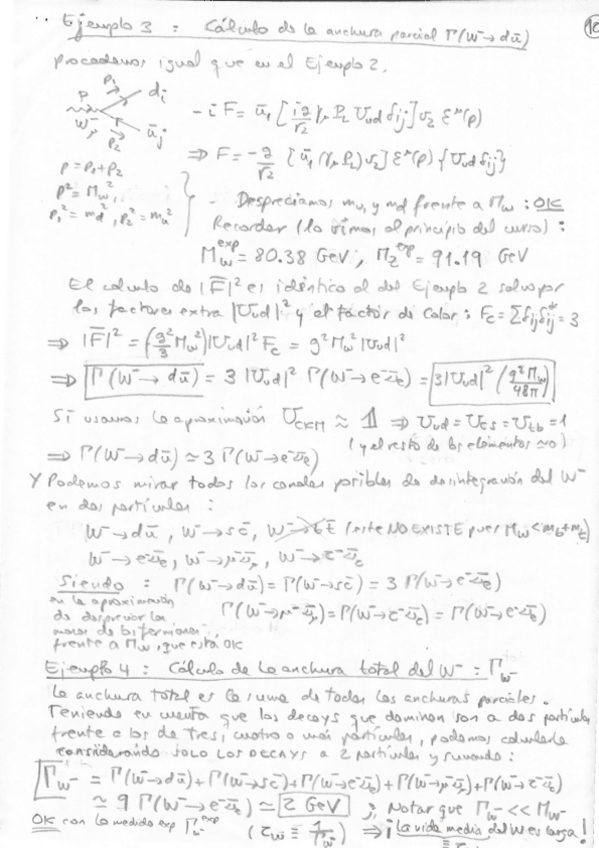 Ejemplo 3 : Cálculo de la anchura parcial Γ(W⁻→dū)
Procedemos igual que en el Ejemplo 2.
p₁ dᵢ
p W⁻μ
p₂ ūⱼ
-iF = ū₁ [ig/√2 γμ P_L U_ud δij] v₂ ε^μ(p)
⇒ F = -g/√2 [ū₁ (γμ P_L) v₂] ε^μ(p) {U_ud δij}
p = p₁+p₂
p² = M_W²,
p₁² = m_d², p₂² = m_u²
- Despreciamos m_u, y m_d frente a M_W : OK
Recordar (lo vimos al principio del curso) :
M_W^exp = 80.38 GeV, M_Z^exp = 91.19 GeV
El cálculo de |F̄|² es idéntico al del Ejemplo 2 salvo por
los factores extra |U_ud|² y el factor de color : F_c = Σ δij δij* = 3
⇒ |F̄|² = (g²/3 M_W²) |U_ud|² F_c = g² M_W² |U_ud|²
⇒ Γ(W⁻→ dū) = 3 |U_ud|² Γ(W⁻→e⁻ν̄e) = 3|U_ud|² (g² M_W / 48π)
Si usamos la aproximación U_CKM ≈ 𝟙 ⇒ U_ud = U_cs = U_tb = 1
(y el resto de los elementos ≈ 0)
⇒ Γ(W⁻→dū) ≃ 3 Γ(W⁻→e⁻ν̄e)
Y Podemos mirar todos los canales posibles de desintegración del W⁻
en dos partículas :
W⁻→dū, W⁻→sc̄, W⁻→bt̄ (este NO EXISTE pues M_W < m_b+m_t)
W⁻→e⁻ν̄e, W⁻→μ⁻ν̄μ, W⁻→τ⁻ν̄τ
Siendo : Γ(W⁻→dū) = Γ(W⁻→sc̄) = 3 Γ(W⁻→e⁻ν̄e)
en la aproximación
de despreciar las
masas de los fermiones
frente a M_W, que está OK
Γ(W⁻→μ⁻ν̄μ) = Γ(W⁻→τ⁻ν̄τ) = Γ(W⁻→e⁻ν̄e)
Ejemplo 4 : Cálculo de la anchura total del W⁻ : Γ_W⁻
La anchura total es la suma de todas las anchuras parciales.
Teniendo en cuenta que los decays que dominan son a dos partículas
frente a los de tres, cuatro o más partículas, podemos calcularla
considerando SOLO LOS DECAYS a 2 partículas y sumando :
Γ_W⁻ = Γ(W⁻→dū) + Γ(W⁻→sc̄) + Γ(W⁻→e⁻ν̄e) + Γ(W⁻→μ⁻ν̄μ) + Γ(W⁻→τ⁻ν̄τ)
≃ 9 Γ(W⁻→e⁻ν̄e) ≃ 2 GeV ; Notar que Γ_W⁻ << M_W⁻
OK con la medida exp Γ_W⁻^exp (τ_W⁻ ≡ 1/Γ_W⁻) ⇒ ¡La vida media del W es larga!